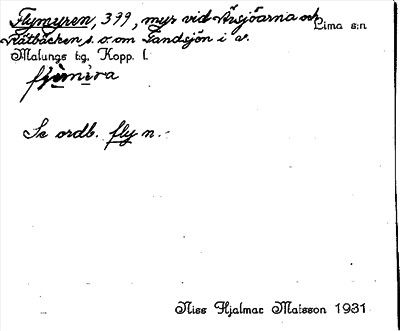 Flymyren, 399, myr vid Åsjöarna och Lima s:n
Nätbäcken s. o. om Tandsjön i v.
Malungs t:g. Kopp. l.
flỳmi̱ra
Se ordb. fly n. -
Niss Hjalmar Matsson 1931